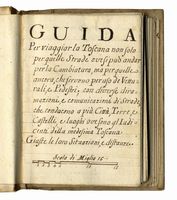 GUIDA
Per viaggiar la Toscana non solo
per quelle Strade ove si può andar
per la Cambiatura, ma per quelle
ancora, che servono per uso de Vetu-
rali, e Pedestri, con diverse dira-
mazioni, e comunicazioni di Strade,
che conducono a più Città, Terre, e
Castelli e luoghi ove sono gl'Indi
della medesima Toscana
Giuste le loro situazioni, e distanze.
Scala di Miglia 15